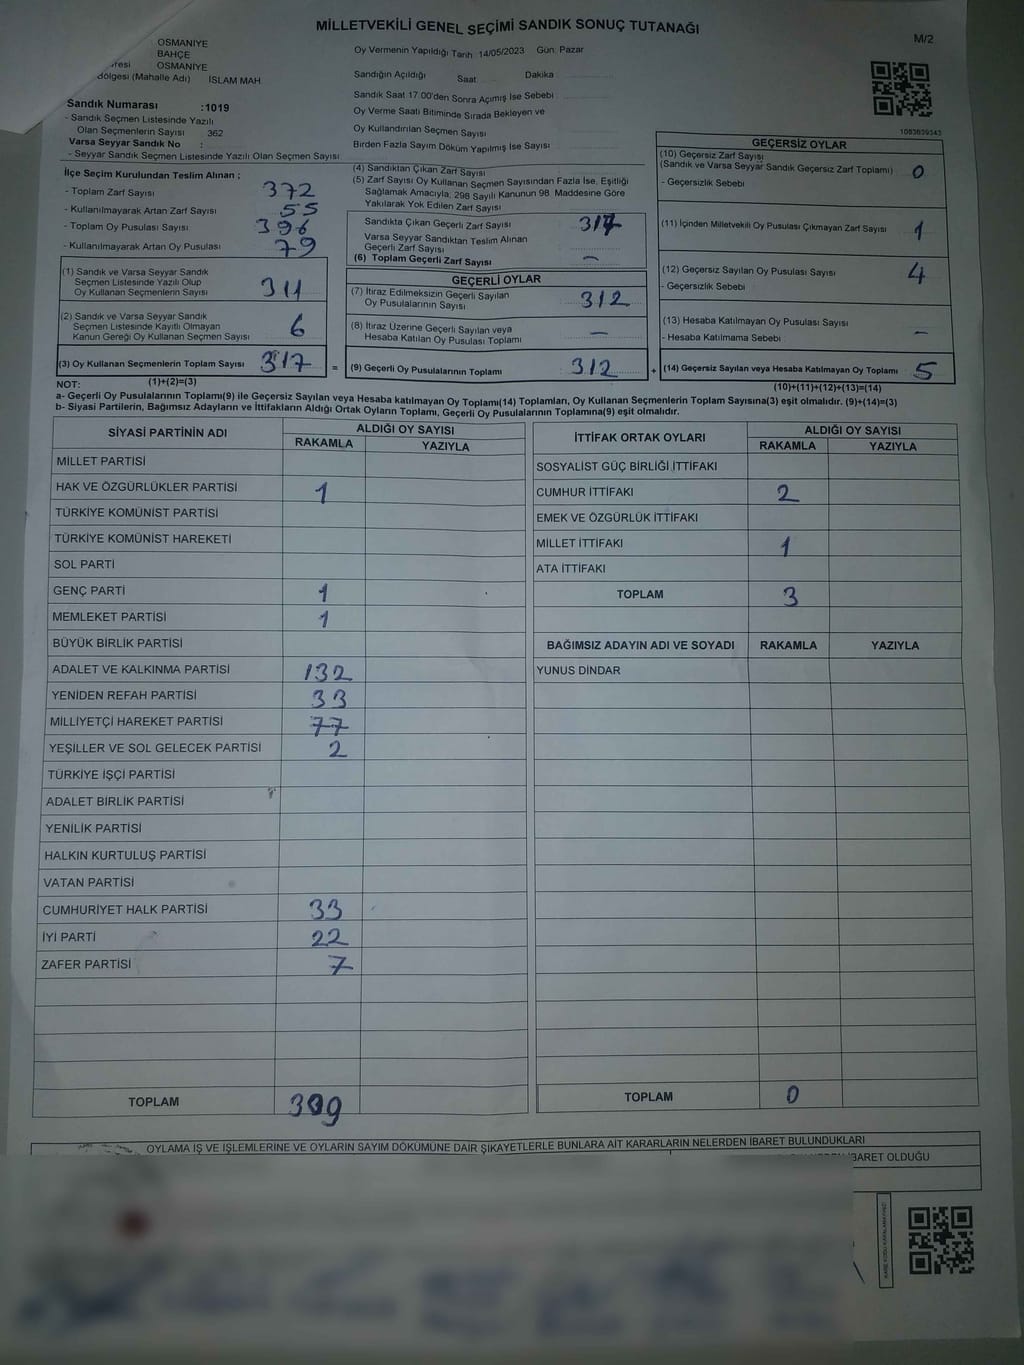 MİLLETVEKİLİ GENEL SEÇİMİ SANDIK SONUÇ TUTANAĞI
M/2
OSMANİYE
BAHÇE
OSMANİYE
(Mahalle Adı) İSLAM MAH
Oy Vermenin Yapıldığı Tarih 14/05/2023 Gün: Pazar
Sandığın Açıldığı Saat Dakika
Sandık Saat 17.00'den Sonra Açımış İse Sebebi
Oy Verme Saati Bitiminde Sırada Bekleyen ve
Oy Kullandırılan Seçmen Sayısı
Birden Fazla Sayım Döküm Yapılmış İse Sayısı
Sandık Numarası :1019
- Sandık Seçmen Listesinde Yazılı
Olan Seçmenlerin Sayısı : 362
Varsa Seyyar Sandık No :
- Seyyar Sandık Seçmen Listesinde Yazılı Olan Seçmen Sayısı
İlçe Seçim Kurulundan Teslim Alınan ;
- Toplam Zarf Sayısı 372
- Kullanılmayarak Artan Zarf Sayısı 55
- Toplam Oy Pusulası Sayısı 396
- Kullanılmayarak Artan Oy Pusulası 79
(1) Sandık ve Varsa Seyyar Sandık
Seçmen Listesinde Yazılı Olup
Oy Kullanan Seçmenlerin Sayısı 311
(2) Sandık ve Varsa Seyyar Sandık
Seçmen Listesinde Kayıtlı Olmayan
Kanun Gereği Oy Kullanan Seçmen Sayısı 6
(3) Oy Kullanan Seçmenlerin Toplam Sayısı 317 =
(1)+(2)=(3)
(4) Sandıktan Çıkan Zarf Sayısı
(5) Zarf Sayısı Oy Kullanan Seçmen Sayısından Fazla İse, Eşitliği
Sağlamak Amacıyla, 298 Sayılı Kanunun 98. Maddesine Göre
Yakılarak Yok Edilen Zarf Sayısı
Sandıkta Çıkan Geçerli Zarf Sayısı 317
Varsa Seyyar Sandıktan Teslim Alınan
Geçerli Zarf Sayısı
(6) Toplam Geçerli Zarf Sayısı –
GEÇERLİ OYLAR
(7) İtiraz Edilmeksizin Geçerli Sayılan
Oy Pusulalarının Sayısı : 312
(8) İtiraz Üzerine Geçerli Sayılan veya
Hesaba Katılan Oy Pusulası Toplamı –
(9) Geçerli Oy Pusulalarının Toplamı : 312 +
1083639343
GEÇERSİZ OYLAR
(10) Geçersiz Zarf Sayısı
(Sandık ve Varsa Seyyar Sandık Geçersiz Zarf Toplamı) 0
- Geçersizlik Sebebi
(11) İçinden Milletvekili Oy Pusulası Çıkmayan Zarf Sayısı 1
(12) Geçersiz Sayılan Oy Pusulası Sayısı 4
- Geçersizlik Sebebi
(13) Hesaba Katılmayan Oy Pusulası Sayısı –
- Hesaba Katılmama Sebebi
(14) Geçersiz Sayılan veya Hesaba Katılmayan Oy Toplamı 5
(10)+(11)+(12)+(13)=(14)
NOT:
a- Geçerli Oy Pusulalarının Toplamı(9) ile Geçersiz Sayılan veya Hesaba katılmayan Oy Toplamı(14) Toplamları, Oy Kullanan Seçmenlerin Toplam Sayısına(3) eşit olmalıdır. (9)+(14)=(3)
b- Siyasi Partilerin, Bağımsız Adayların ve İttifakların Aldığı Ortak Oyların Toplamı, Geçerli Oy Pusulalarının Toplamına(9) eşit olmalıdır.
SİYASİ PARTİNİN ADI
ALDIĞI OY SAYISI
RAKAMLA YAZIYLA
MİLLET PARTİSİ
HAK VE ÖZGÜRLÜKLER PARTİSİ 1
TÜRKİYE KOMÜNİST PARTİSİ
TÜRKİYE KOMÜNİST HAREKETİ
SOL PARTİ
GENÇ PARTİ 1
MEMLEKET PARTİSİ 1
BÜYÜK BİRLİK PARTİSİ
ADALET VE KALKINMA PARTİSİ 132
YENİDEN REFAH PARTİSİ 33
MİLLİYETÇİ HAREKET PARTİSİ 77
YEŞİLLER VE SOL GELECEK PARTİSİ 2
TÜRKİYE İŞÇİ PARTİSİ
ADALET BİRLİK PARTİSİ
YENİLİK PARTİSİ
HALKIN KURTULUŞ PARTİSİ
VATAN PARTİSİ
CUMHURİYET HALK PARTİSİ 33
İYİ PARTİ 22
ZAFER PARTİSİ 7
TOPLAM 309
İTTİFAK ORTAK OYLARI
ALDIĞI OY SAYISI
RAKAMLA YAZIYLA
SOSYALİST GÜÇ BİRLİĞİ İTTİFAKI
CUMHUR İTTİFAKI 2
EMEK VE ÖZGÜRLÜK İTTİFAKI
MİLLET İTTİFAKI 1
ATA İTTİFAKI
TOPLAM 3
BAĞIMSIZ ADAYIN ADI VE SOYADI RAKAMLA YAZIYLA
YUNUS DİNDAR
TOPLAM 0
OYLAMA İŞ VE İŞLEMLERİNE VE OYLARIN SAYIM DÖKÜMÜNE DAİR ŞİKAYETLERLE BUNLARA AİT KARARLARIN NELERDEN İBARET BULUNDUKLARI
İBARET OLDUĞU